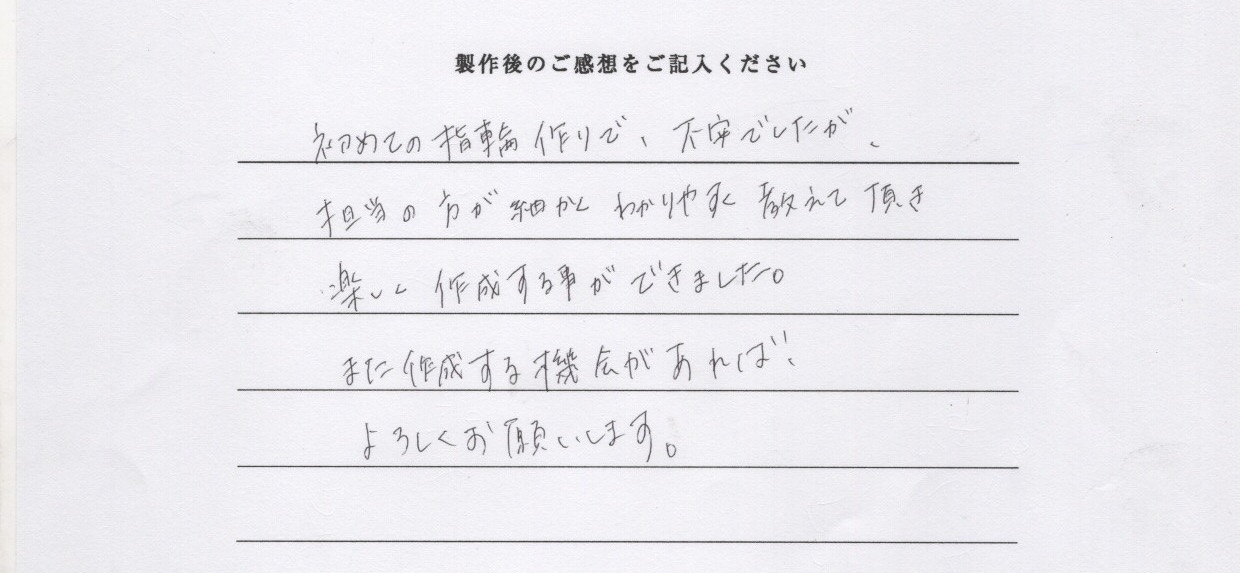 製作後のご感想をご記入ください
初めての指輪作りで、不安でしたが、
担当の方が細かくわかりやすく教えて頂き
楽しく作成する事ができました。
また作成する機会があれば、
よろしくお願いします。